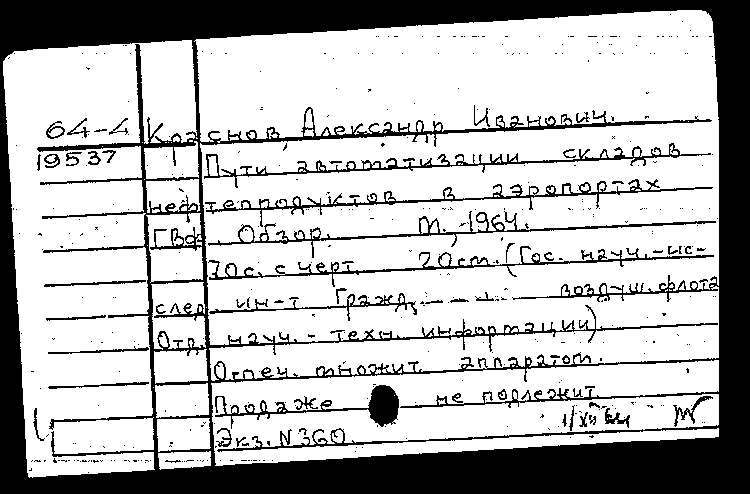 64-4 Краснов, Александр Иванович.
19537 Пути автоматизации складов
нефтепродуктов в аэропортах
ГВФ. Обзор. М., 1964.
70с. с черт. 20см. (Гос. науч.-ис-
след. ин-т Гражд. воздуш. флота
Отд. науч.-техн. информации).
Отпеч. множит. аппаратом.
Продаже не подлежит
Экз. N 360.